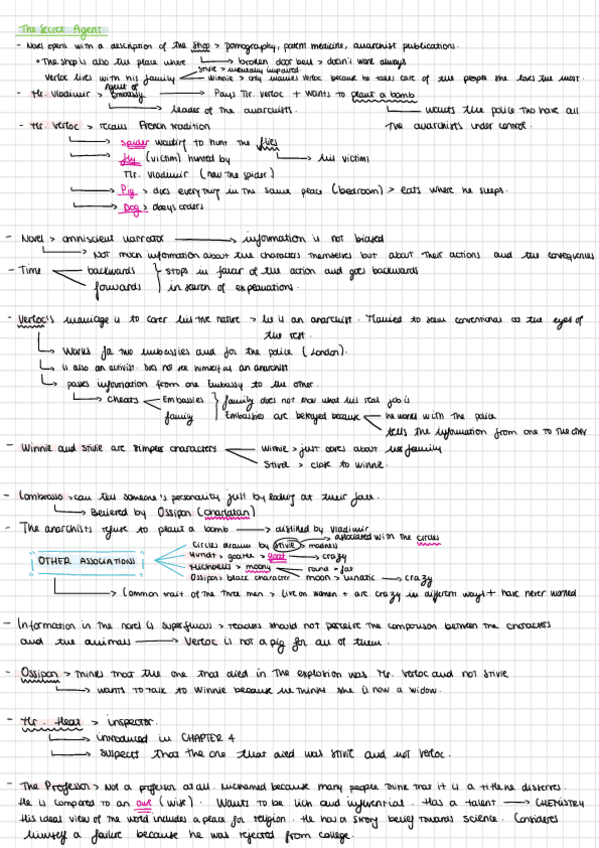 The Secret Agent
- Novel opens with a description of the shop > pornography, patent medicine, anarchist publications.
• The shop is also the place where broken door bell > doesn't work always
Verloc lives with his family Stevie > mentally impaired.
Winnie > only marries Verloc because he takes care of the people she loves the most.
- Mr. Vladimir > Embassy Pays Mr. Verloc + wants to plant a bomb
leader of the anarchists. wants the police to have all
the anarchists under control.
- Mr. Verloc > French tradition
spider waiting to hunt the flies
fly (victim) hunted by his victims
Mr. Vladimir (now the spider)
Pig > does everything in the same place (bedroom) > eats where he sleeps.
Dog > obeys orders
- Novel > omniscient narrator information is not biased
Not much information about the characters themselves but about their actions and the consequences
- Time backwards stops in favor of the action and goes backwards
forwards in search of explanations.
- Verloc's marriage is to cover his true nature > he is an anarchist. Married to seem conventional to the eyes of
the rest.
Works for two embassies and for the police (London).
is also an activist. Does not see himself as an anarchist
passes information from one Embassy to the other.
cheats Embassies family does not know what his real job is
family Embassies are betrayed because he works with the police
tells the information from one to the other
- Winnie and Stivie are simpler characters Winnie > just cares about her family
Stivie > close to Winnie.
- Lombroso > can tell someone's personality just by looking at their face.
Believed by Ossipon (charlatan)
- The anarchists refuse to plant a bomb disliked by Vladimir
associated with the circles
Circles drawn by Stivie > madness
OTHER ASSOCIATIONS > goatee > goat crazy
Michaelis > moony round + fat
Ossipon > black character moon > lunatic crazy
Common trait of the three men > live on women + are crazy in different ways + have never worked
- Information in the novel is superfluous > readers should not perceive the comparison between the characters
and the animals Verloc is not a pig for all of them.
- Ossipon > Thinks that the one that died in the explosion was Mr. Verloc and not Stivie
wants to talk to Winnie because he thinks she is now a widow.
- Mr. Heat > inspector.
introduced in CHAPTER 4
suspects that the one that died was Stivie and not Verloc.
- The Professor > Not a professor at all. Nicknamed because many people think that it is a title he deserves.
He is compared to an owl (wise). Wants to be rich and influential. Has a talent CHEMISTRY
His ideal view of the world includes a peace for religion. He has a strong belief towards science. Considers
himself a failure because he was rejected from college.